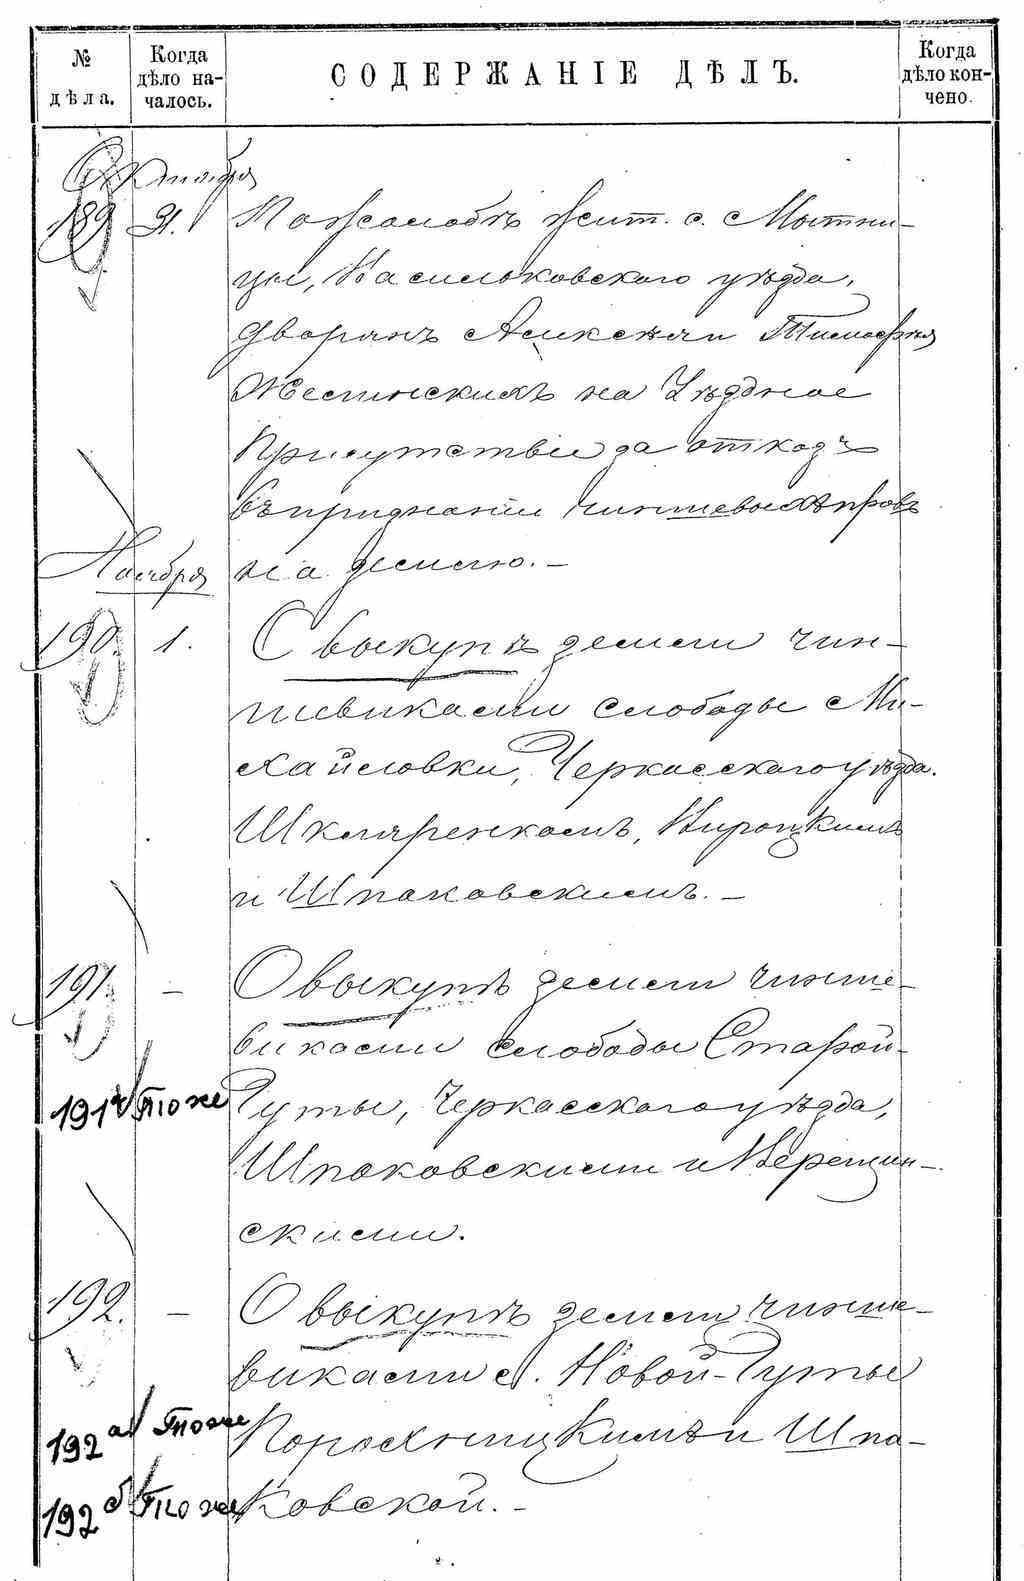 № дѣла.
Когда дѣло началось.
СОДЕРЖАНІЕ ДѢЛЪ.
Когда дѣло кончено.
Октября
189 31. По жалобѣ жит. с. Мытни-
цы, Васильковскаго уѣзда,
дворянъ Алексѣя и Тимофея
на Уѣздное
Присутствіе за отказъ
въ признаніи чиншевыхъ правъ
на землю. —
Ноября
190. 1. О выкупѣ земли чин-
шевиками слободы Ми-
хайловки, Черкасскаго уѣзда.
Шкляренкомъ,
и Шпаковскимъ. —
191. — О выкупѣ земли чинше-
виками слободы Старой-
191 а Тоже Гуты, Черкасскаго уѣзда,
Шпаковскими и Верещин-
скими.
192. — О выкупѣ земли чинше-
виками с. Новой-Гуты
192 а Тоже Порохницкимъ и Шпа-
192 б Тоже ковской. —